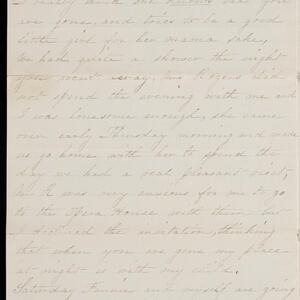 I really think one knows that you
are gone, and tries to be a good
little girl for her mama sake,
We had quite a shower the night
you went away, Mrs Rogers did
not spend the evening with me and
I was lonesome enough, she came
over early Thursday morning and made
us go home with her to spend the
day we had a real pleasant visit,
Mr R was very anxious for me to go
to the Opera House with them but
I declined the invitation, thinking
that when you are gone my place
at night is with my child.
Saturday Fannie and myself are going